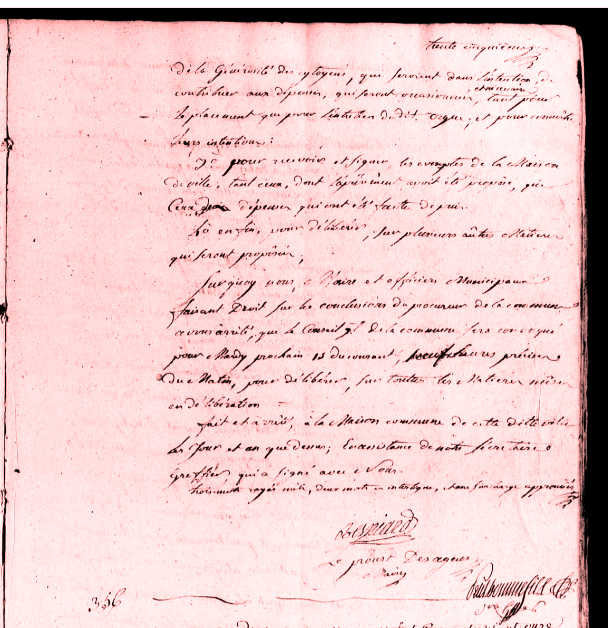 trente cinquieme
de la Générosité des citoyens, qui seroient dans l'intention de
contribuer aux dépenses, qui seront occasionnées, tant pour
et recevoir
le placement que pour l'entretien dudit orgue; et pour connoître
leurs intentions:
9° pour recevoir et signer, les comptes de la Maison
de ville, tant ceux, dont l'apurement avoit été proposé, que
ceux dépenses qui ont été faite depuis
Et enfin, pour délibérer, sur plusieurs autres Matieres
qui seront proposées,
Sur quoy nous, Maire et officiers Municipaux
faisant Droit sur les conclusions du procureur de la commune
avons arrêté, que le Conseil gl de la commune sera convoqué
pour Mardy prochain 13 du courant, neuf heures précises
du Matin, pour délibérer, sur toutes les Matieres mises
en délibération
fait et arrêté, à la Maison commune de cette ditte ville
les Jour et an que dessus; En assistance de notre sécrétaire
greffier qui a signé avec Nous.
trois mots rayés nuls, deux mots en interligne, approuvés
Le prevost Desageux
Maire
356